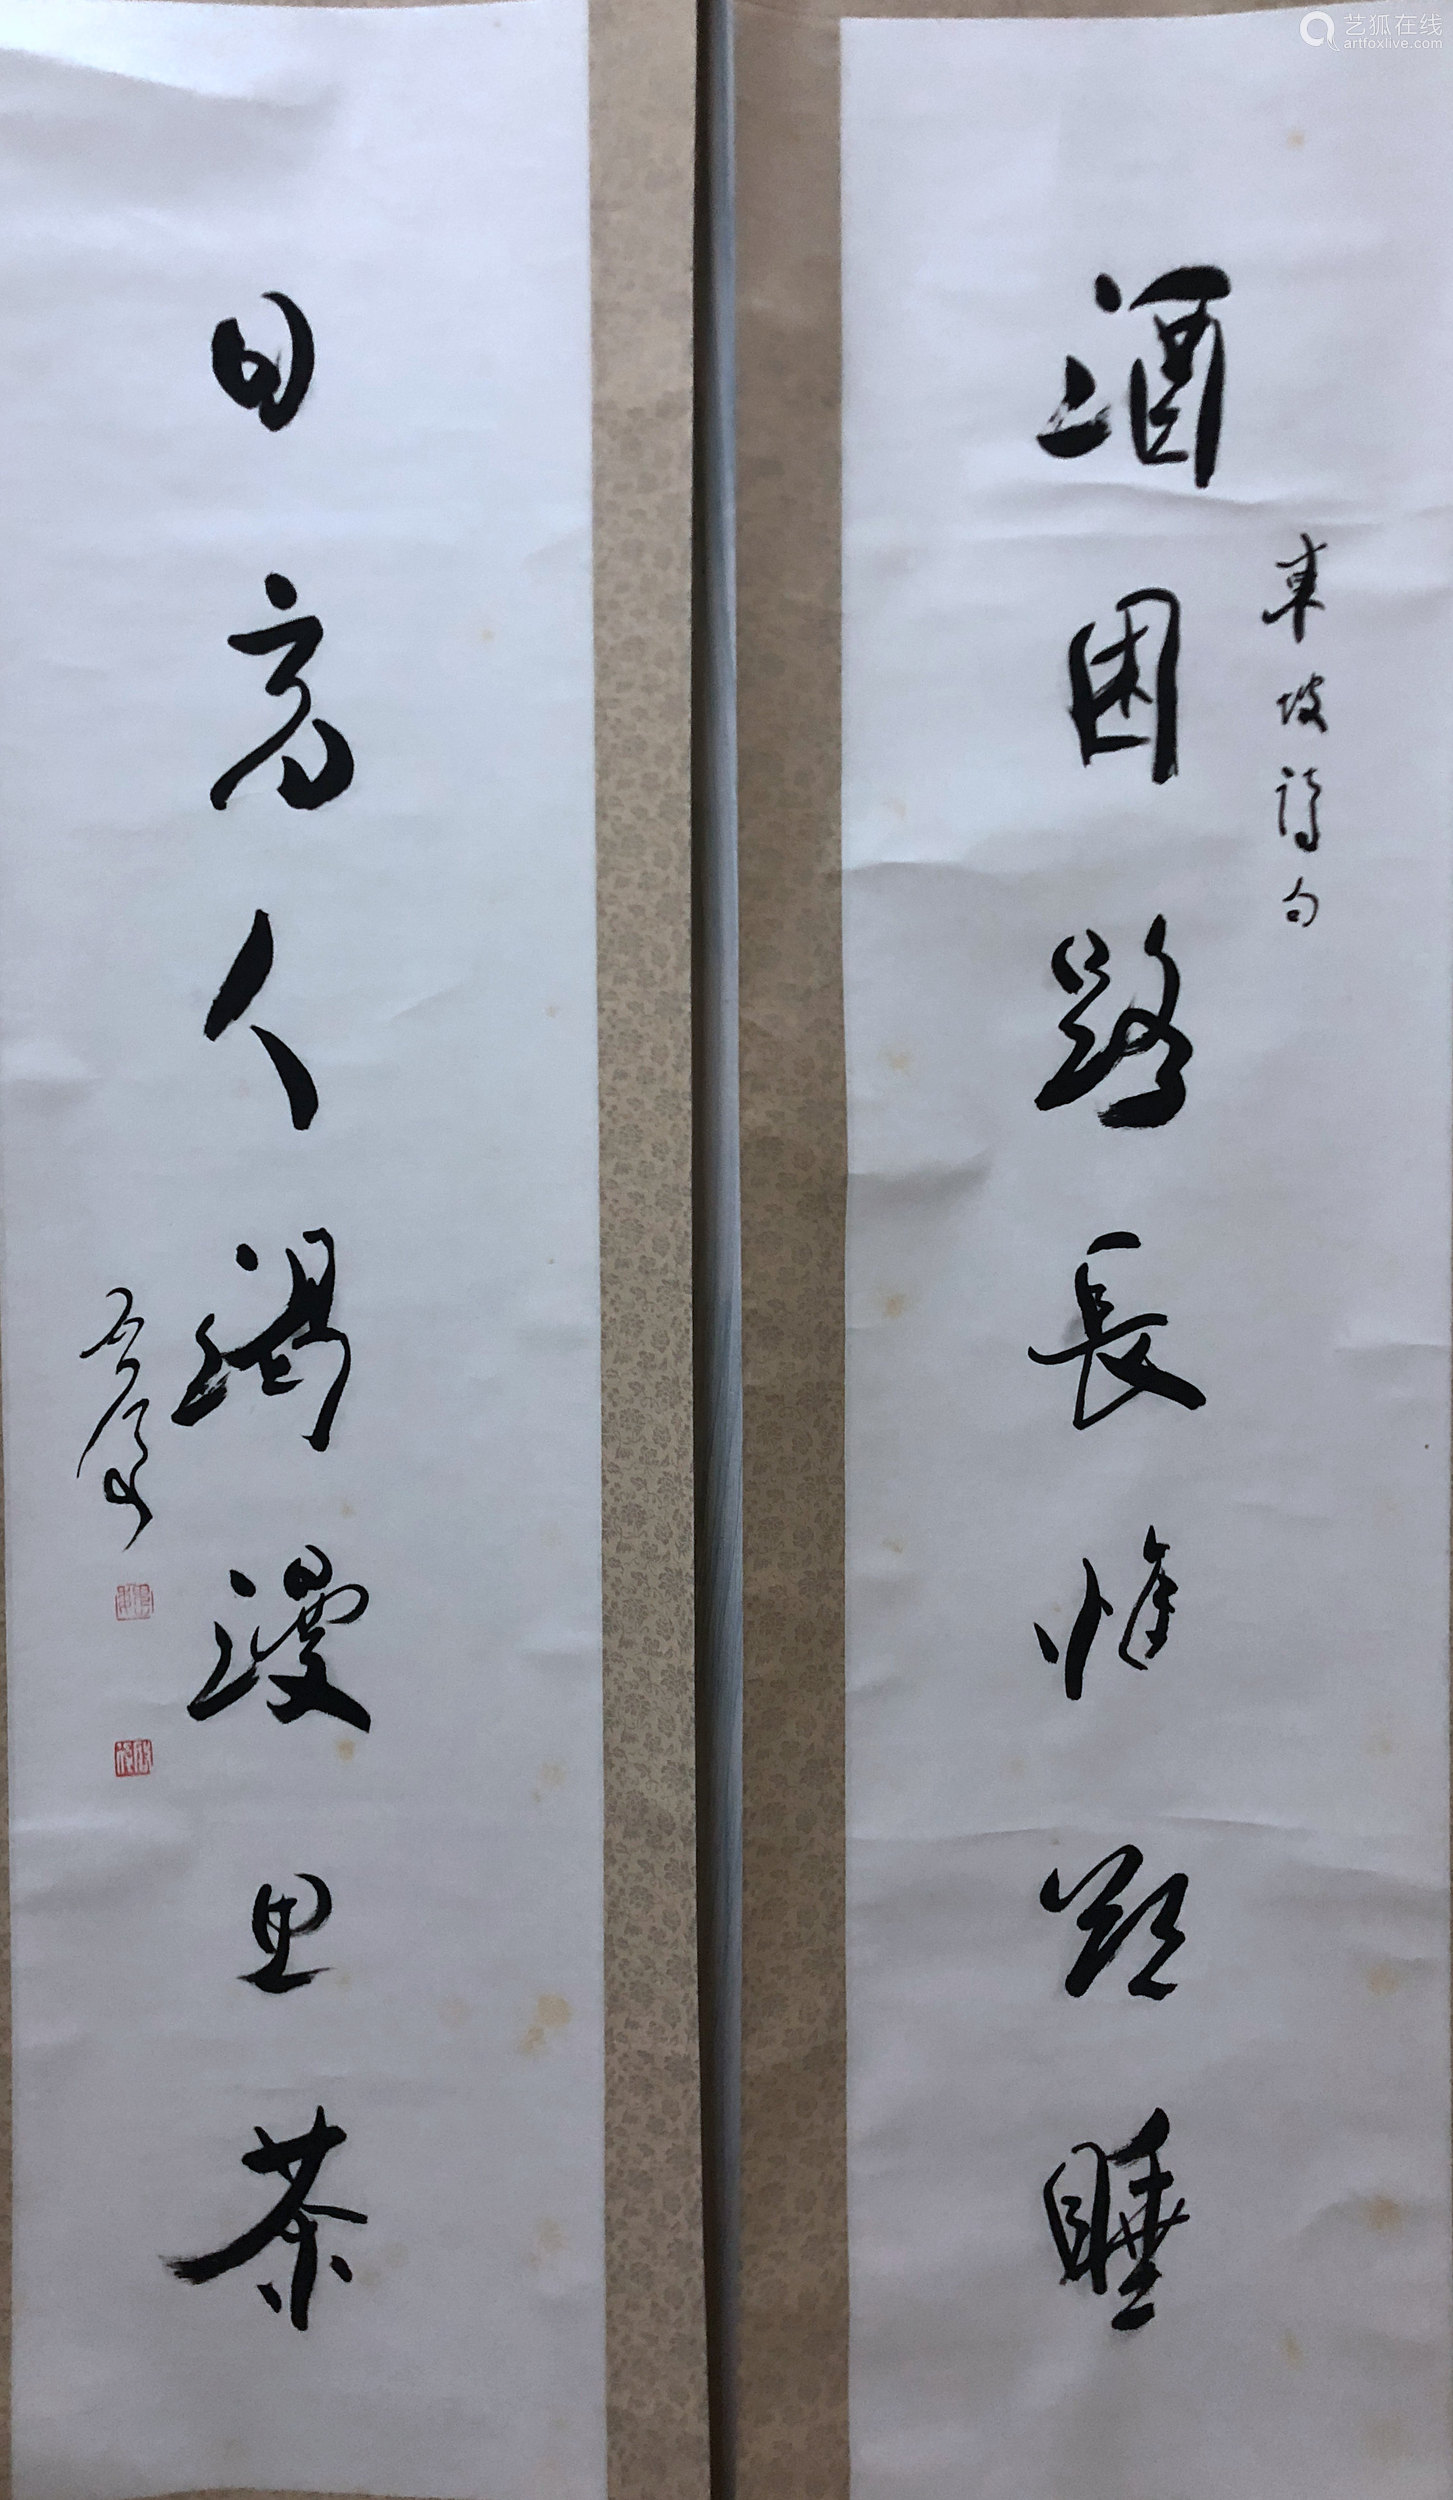 艺狐在线
artfoxlive.com
東坡詩句
酒困路長惟欲睡
日高人渴漫思茶